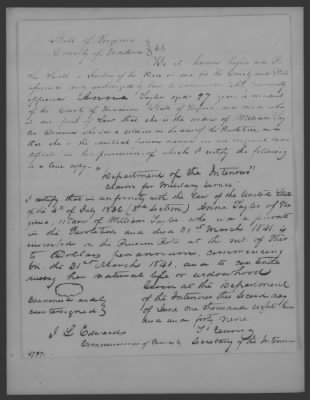 State of Virginia
County of Madison } SS
Be it known before me
the State a Justice of the Peace in and for the County and State
aforesaid and duly authorized by law to administer oaths personally
appeared Anna Taylor aged 87 years a resident
of the County of Madison State of Virginia and made oath
in due form of Law that she is the widow of William Taylor
deceased who was a soldier in the war of the Revolution and
that she is the identical person named in an original
certificate in her possession of which I certify the following
is a true copy "
Department of the Interior
Claim for Military Service
I certify that in conformity with the Law of the United States
of the 4th of July 1836 (3rd Section) Anna Taylor of
widow of William Taylor who was a private
in the Revolution and died 31st March 1841 is
inscribed on the Pension Roll at the rate of Thirty
Dollars per annum, commencing
on the 31st March 1841, and to continue
during her natural life or widowhood
Given at the Department
of the Interior this second day
of June one thousand eight hun
dred and forty nine
Examined and
Countersigned
J L Edwards
T. Ewing
Commissioner of Pensions
Secretary of the Interior